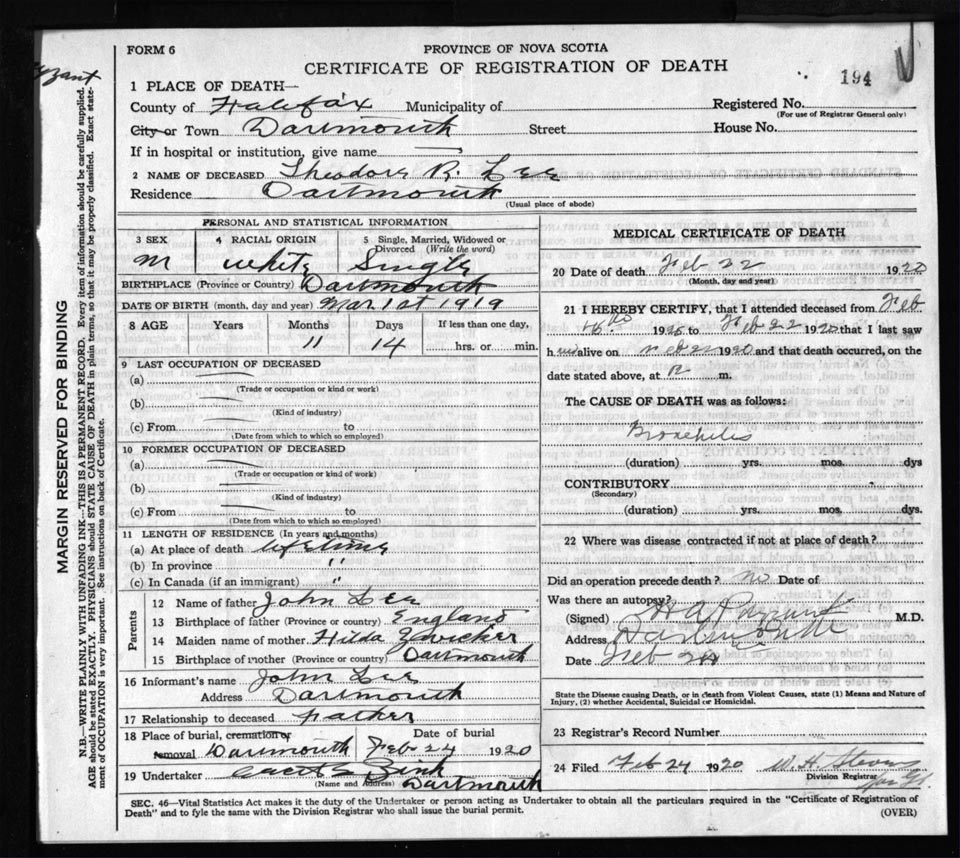 FORM 6
PROVINCE OF NOVA SCOTIA
CERTIFICATE OF REGISTRATION OF DEATH
194
1 PLACE OF DEATH—
County of Halifax Municipality of
Registered No.
(For use of Registrar General only)
City or Town Dartmouth Street
House No.
If in hospital or institution, give name
2 NAME OF DECEASED Theodore R. Lee
Residence Dartmouth
(Usual place of abode)
MARGIN RESERVED FOR BINDING
N.B.—WRITE PLAINLY WITH UNFADING INK—THIS IS A PERMANENT RECORD. Every item of information should be carefully supplied.
AGE should be stated EXACTLY. PHYSICIANS should STATE CAUSE OF DEATH in plain terms, so that it may be properly classified. Exact state-
ment of OCCUPATION is very important. See instructions on back of Certificate.
PERSONAL AND STATISTICAL INFORMATION
3 SEX 4 RACIAL ORIGIN 5 Single, Married, Widowed or
Divorced (Write the word)
M White Single
BIRTHPLACE (Province or Country) Dartmouth
DATE OF BIRTH (month, day and year) Mar 1st 1919
8 AGE Years Months Days If less than one day,
11 14 hrs. or min.
9 LAST OCCUPATION OF DECEASED
(a)
(Trade or occupation or kind or work)
(b)
(Kind of industry)
(c) From to
(Date from which to which so employed)
10 FORMER OCCUPATION OF DECEASED
(a)
(Trade or occupation or kind of work)
(b)
(Kind of industry)
(c) From to
(Date from which to which so employed)
11 LENGTH OF RESIDENCE (In years and months)
(a) At place of death lifetime
(b) In province "
(c) In Canada (if an immigrant) "
Parents
12 Name of father John Lee
13 Birthplace of father (Province or country) England
14 Maiden name of mother Hilda Zwicker
15 Birthplace of mother (Province or country) Dartmouth
16 Informant's name John Lee
Address Dartmouth
17 Relationship to deceased Father
18 Place of burial, cremation or Date of burial
removal Dartmouth Feb 24 1920
19 Undertaker
(Name and Address) Dartmouth
MEDICAL CERTIFICATE OF DEATH
20 Date of death Feb 22 1920
(Month, day and year)
21 I HEREBY CERTIFY, that I attended deceased from Feb
192 to Feb 22 1920 that I last saw
h alive on 1920 and that death occurred, on the
date stated above, at m.
The CAUSE OF DEATH was as follows:
Bronchitis
(duration) yrs. mos. dys
CONTRIBUTORY
(Secondary)
(duration) yrs. mos. dys.
22 Where was disease contracted if not at place of death?
Did an operation precede death? no Date of
Was there an autopsy?
(Signed) M.D.
Address Dartmouth
Date Feb 24
State the Disease causing Death, or in death from Violent Causes, state (1) Means and Nature of
Injury, (2) whether Accidental, Suicidal or Homicidal.
23 Registrar's Record Number
24 Filed Feb 24 1920 W. H. Stevens
Division Registrar
SEC. 46—Vital Statistics Act makes it the duty of the Undertaker or person acting as Undertaker to obtain all the particulars required in the "Certificate of Registration of
Death" and to fyle the same with the Division Registrar who shall issue the burial permit.
(OVER)